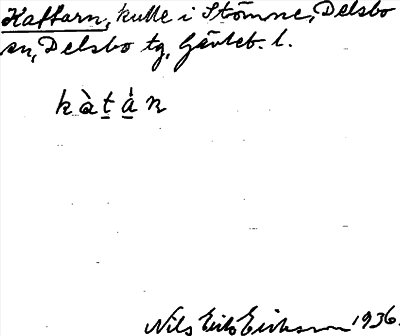 Kattarn, kulle i Stömne, Delsbo
sn, Delsbo tg, Gävleb. l.
kàt̲á̲n
Nils Erik Eriksson 1936.